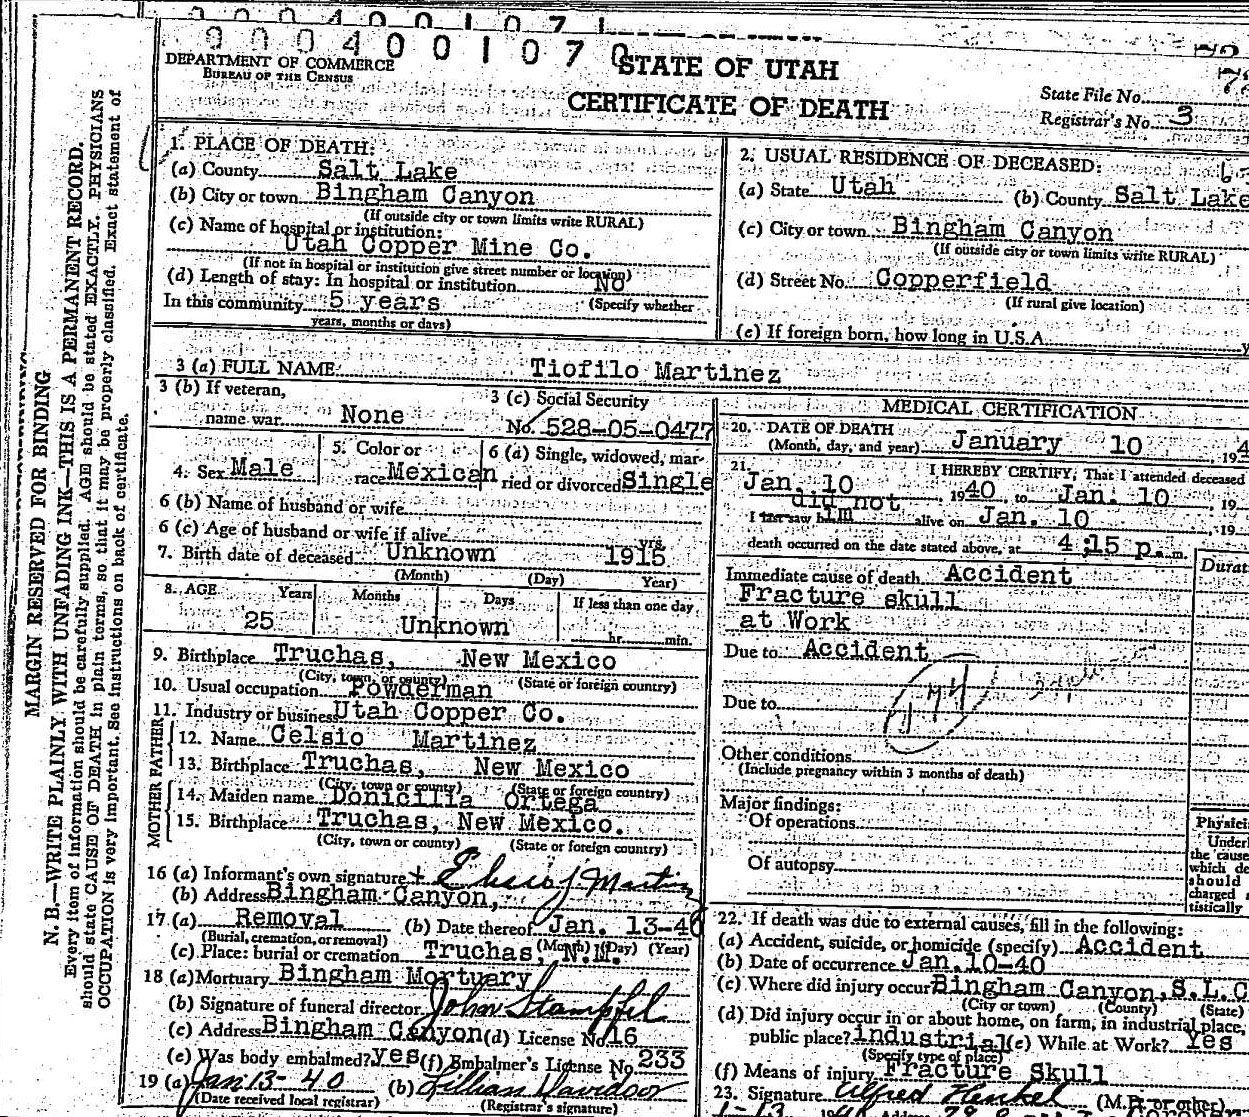 0 0 0 4 0 0 1 0 7 1
0 0 0 4 0 0 1 0 7 0
DEPARTMENT OF COMMERCE
BUREAU OF THE CENSUS
STATE OF UTAH
CERTIFICATE OF DEATH
State File No.
Registrar's No. 3
MARGIN RESERVED FOR BINDING
N. B.—WRITE PLAINLY, WITH UNFADING INK—THIS IS A PERMANENT RECORD.
Every item of information should be carefully supplied. AGE should be stated EXACTLY. PHYSICIANS
should state CAUSE OF DEATH in plain terms, so that it may be properly classified. Exact statement of
OCCUPATION is very important. See instructions on back of certificate.
1. PLACE OF DEATH:
(a) County Salt Lake
(b) City or town Bingham Canyon
(If outside city or town limits write RURAL)
(c) Name of hospital or institution:
Utah Copper Mine Co.
(If not in hospital or institution give street number or location)
(d) Length of stay: In hospital or institution No
In this community 5 years (Specify whether
years, months or days)
2. USUAL RESIDENCE OF DECEASED:
(a) State Utah (b) County Salt Lake
(c) City or town Bingham Canyon
(If outside city or town limits write RURAL)
(d) Street No. Copperfield
(If rural give location)
(e) If foreign born, how long in U.S.A.
3 (a) FULL NAME Tiofilo Martinez
3 (b) If veteran,
name war None
3 (c) Social Security
No. 528-05-0477
4. Sex Male
5. Color or
race Mexican
6 (a) Single, widowed, mar-
ried or divorced Single
6 (b) Name of husband or wife
6 (c) Age of husband or wife if alive yrs.
7. Birth date of deceased Unknown 1915
(Month) (Day) Year)
8. AGE Years Months Days If less than one day
25 Unknown hr. min.
9. Birthplace Truchas, New Mexico
(City, town, or county) (State or foreign country)
10. Usual occupation Powderman
11. Industry or business Utah Copper Co.
FATHER
12. Name Celsio Martinez
13. Birthplace Truchas, New Mexico
(City, town or county) (State or foreign country)
MOTHER
14. Maiden name Donicilla Ortega
15. Birthplace Truchas, New Mexico.
(City, town or county) (State or foreign country)
16 (a) Informant's own signature
(b) Address Bingham Canyon,
17. (a) Removal (b) Date thereof Jan. 13-40
(Burial, cremation, or removal) (Month) (Day) (Year)
(c) Place: burial or cremation Truchas, N.M.
18 (a) Mortuary Bingham Mortuary
(b) Signature of funeral director John Stampfel
(c) Address Bingham Canyon (d) License No. 16
(e) Was body embalmed? yes (f) Embalmer's License No. 233
19 (a) Jan 13-40 (b) Lillian Davidson
(Date received local registrar) (Registrar's signature)
MEDICAL CERTIFICATION
20. DATE OF DEATH
(Month, day, and year) January 10, 194
21. I HEREBY CERTIFY, That I attended deceased
Jan. 10, 1940, to Jan. 10, 19
did not
I last saw him alive on Jan. 10, 19
death occurred on the date stated above, at 4:15 p.m.
Immediate cause of death Accident
Fracture skull
at Work
Due to Accident
Due to
Other conditions
(Include pregnancy within 3 months of death)
Major findings:
Of operations
Of autopsy
Durat
Physici
Underl
the cause
which de
should
charged s
tistically
22. If death was due to external causes, fill in the following:
(a) Accident, suicide, or homicide (specify) Accident
(b) Date of occurrence Jan. 10-40
(c) Where did injury occur Bingham Canyon, S.L.C
(City or town) (County) (State)
(d) Did injury occur in or about home, on farm, in industrial place,
public place? industrial (e) While at Work? Yes
(Specify type of place)
(f) Means of injury Fracture Skull
23. Signature Alfred Henkel (M.D. or other)